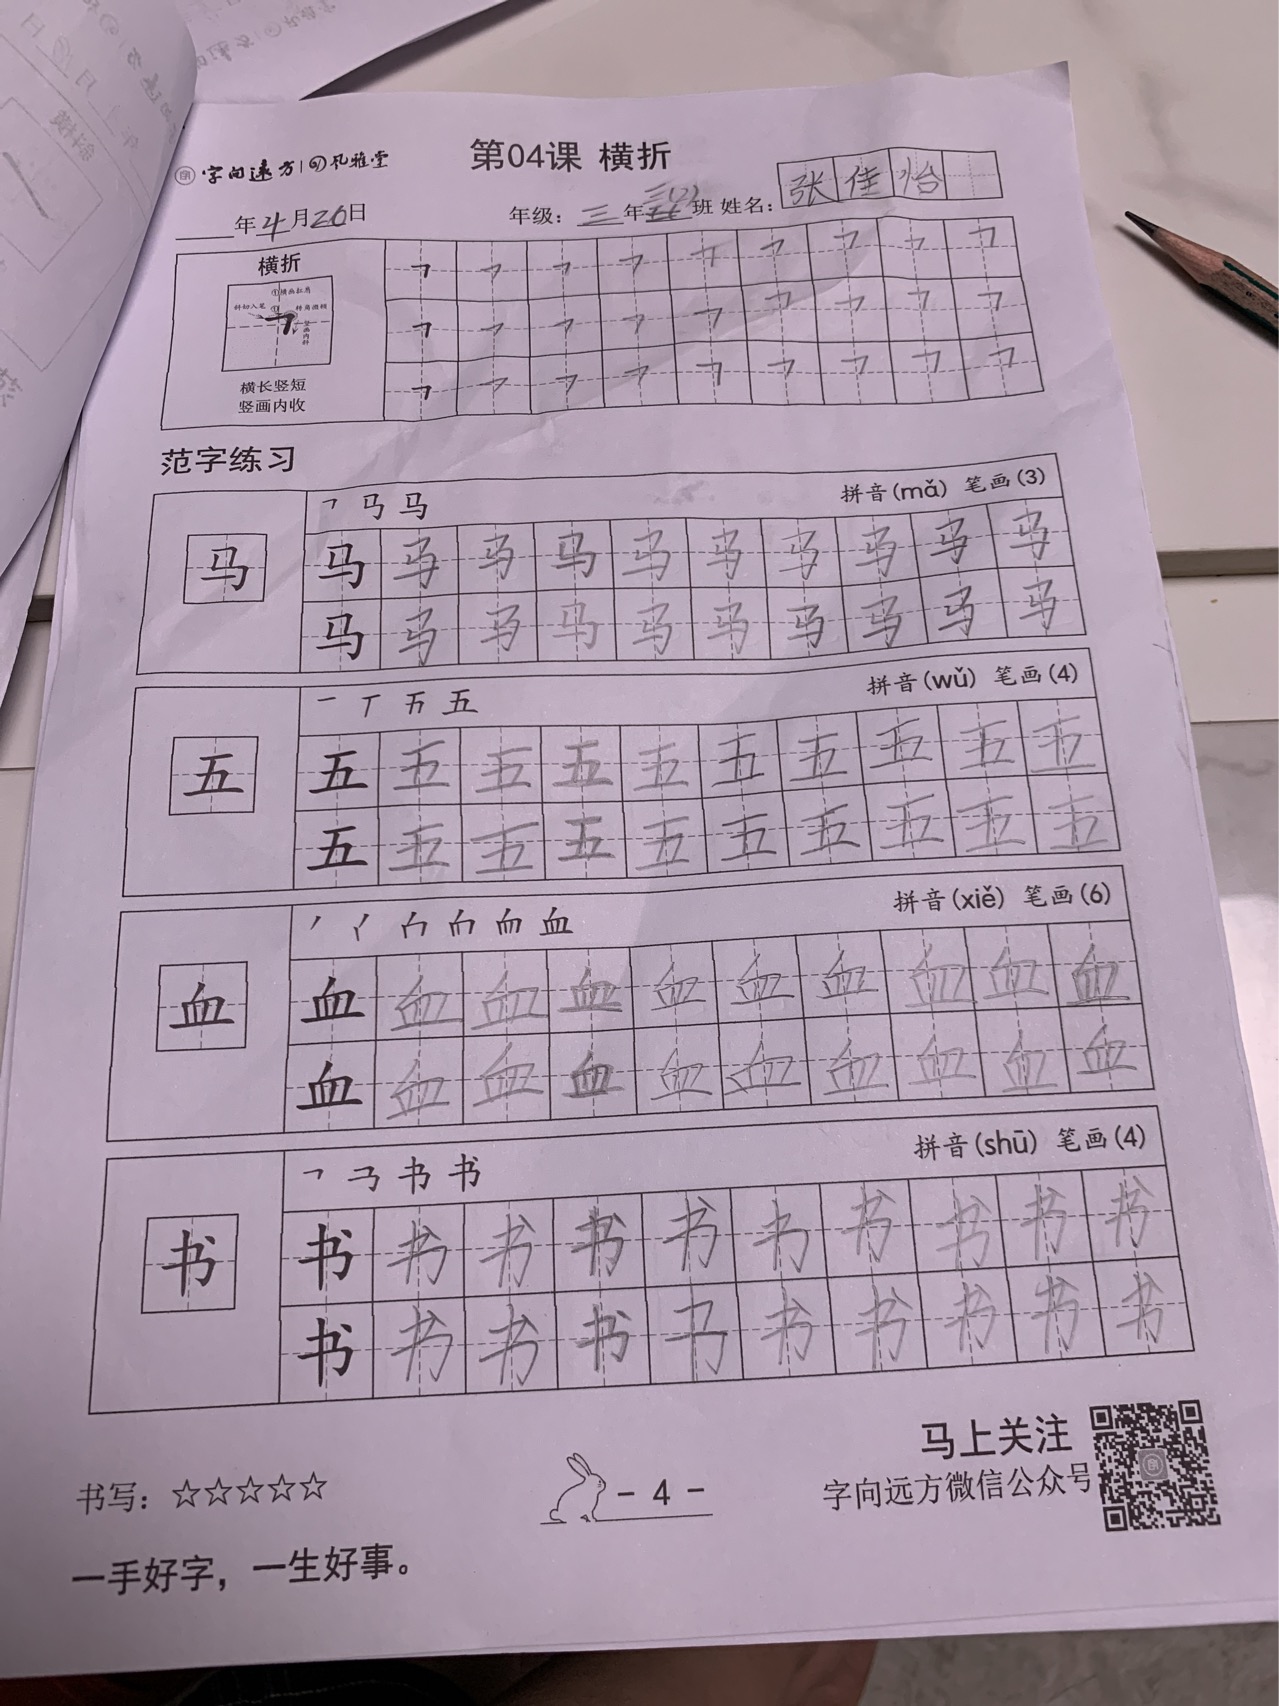 字向远方 | 风雅堂
第04课 横折
年4月26日
年级：三年三(2)班 姓名：张佳怡
横折
①横画扛肩
斜切入笔
转角微顿
竖画内斜
横长竖短
竖画内收
㇕ ㇕ ㇕ ㇕ ㇕ ㇕ ㇕ ㇕ ㇕
㇕ ㇕ ㇕ ㇕ ㇕ ㇕ ㇕ ㇕ ㇕
㇕ ㇕ ㇕ ㇕ ㇕ ㇕ ㇕ ㇕ ㇕
范字练习
马
拼音(mǎ) 笔画(3)
马 马 马 马 马 马 马 马 马 马
马 马 马 马 马 马 马 马 马 马
五
拼音(wǔ) 笔画(4)
五 五 五 五 五 五 五 五 五 五
五 五 五 五 五 五 五 五 五 五
血
拼音(xiě) 笔画(6)
血 血 血 血 血 血 血 血 血 血
血 血 血 血 血 血 血 血 血 血
书
拼音(shū) 笔画(4)
书 书 书 书 书 书 书 书 书 书
书 书 书 书 书 书 书 书 书 书
马上关注
字向远方微信公众号
书写：☆☆☆☆☆
- 4 -
一手好字，一生好事。